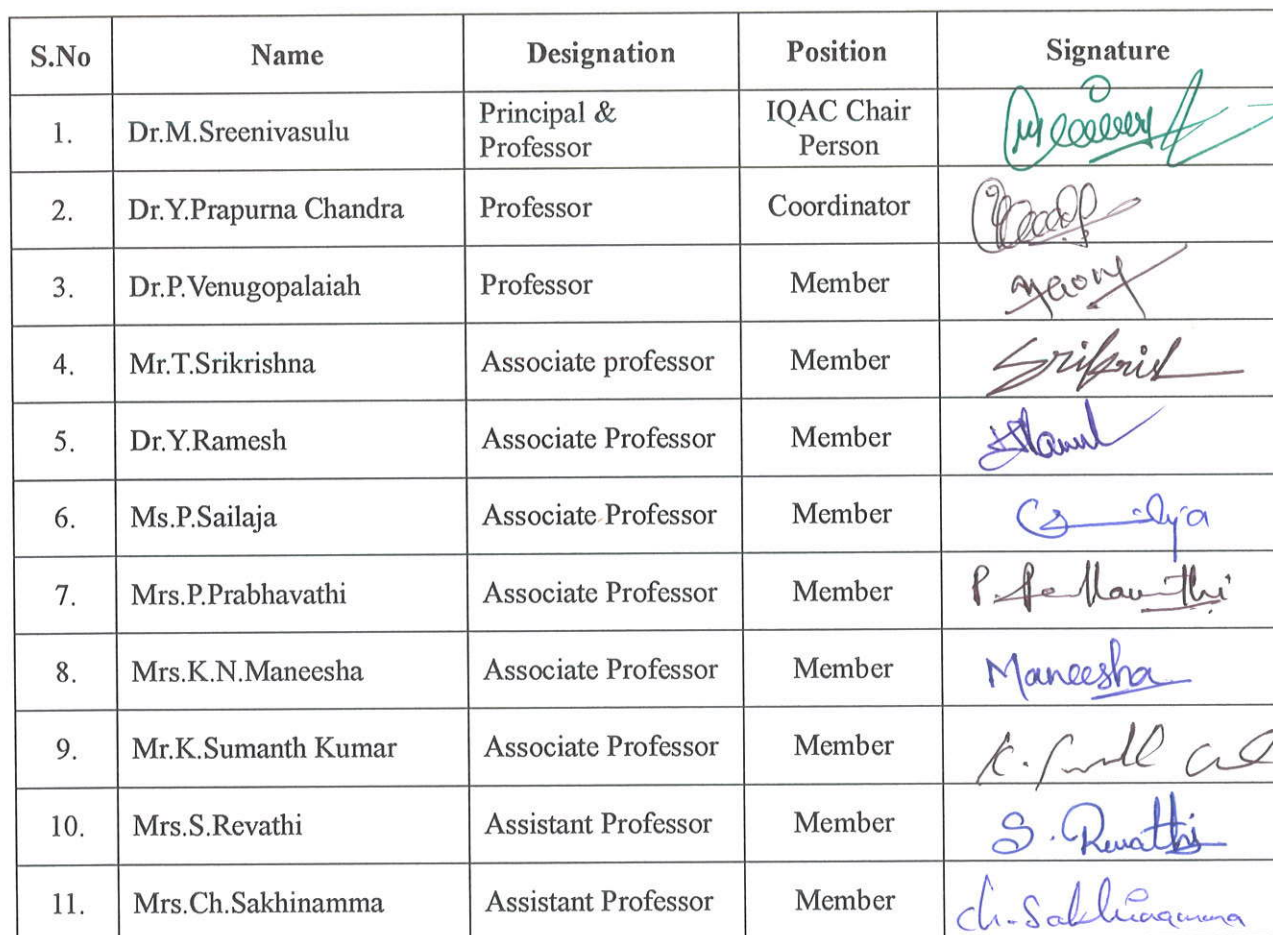 S.No Name Designation Position Signature
1. Dr.M.Sreenivasulu Principal & Professor IQAC Chair Person
2. Dr.Y.Prapurna Chandra Professor Coordinator
3. Dr.P.Venugopalaiah Professor Member
4. Mr.T.Srikrishna Associate professor Member
5. Dr.Y.Ramesh Associate Professor Member
6. Ms.P.Sailaja Associate Professor Member
7. Mrs.P.Prabhavathi Associate Professor Member
8. Mrs.K.N.Maneesha Associate Professor Member Maneesha
9. Mr.K.Sumanth Kumar Associate Professor Member
10. Mrs.S.Revathi Assistant Professor Member S. Revathi
11. Mrs.Ch.Sakhinamma Assistant Professor Member